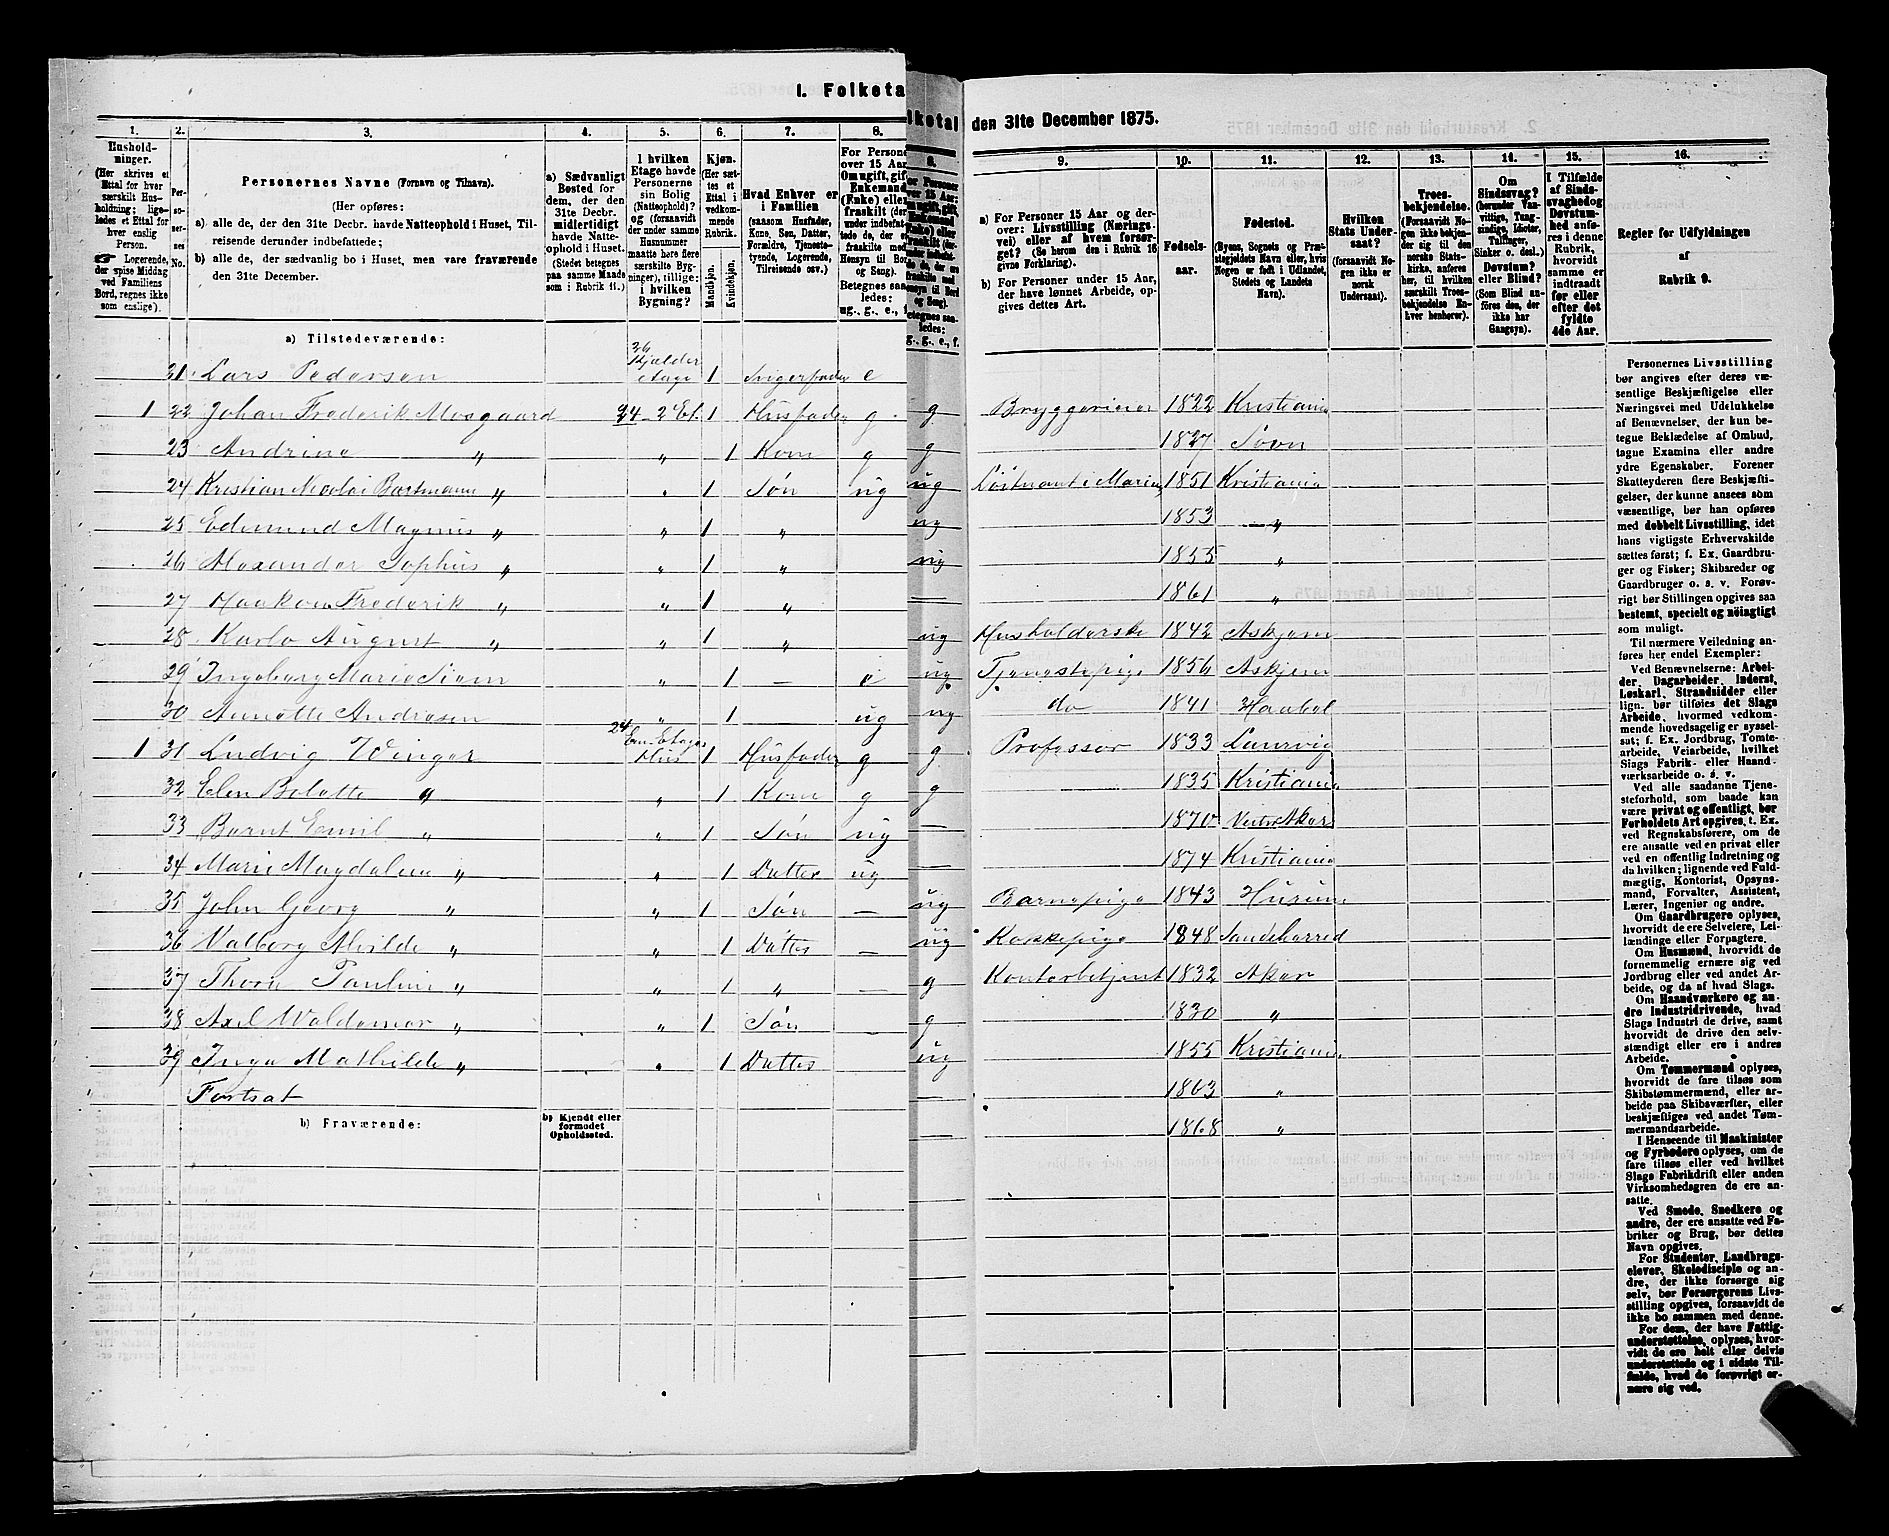 I. Folketa
1. 2. 3. 4. 5. 6. 7. 8.
Hushold-
ninger.
(Her skrives et
Ettal for hver
særskilt Hus-
holdning; lige-
ledes et Ettal for
hver enslig
Person.
Logerende,
der spise Middag
ved Familiens
Bord, regnes ikke
som enslige).
Per-
so-
ner-
nes
No.
Personernes Navne (Fornavn og Tilnavn).
(Her opføres:
a) alle de, der den 31te Decbr. havde Natteophold i Huset, Til-
reisende derunder indbefattede;
b) alle de, der sædvanlig bo i Huset, men vare fraværende
den 31te December.
a) Sædvanligt
Bosted for
dem, der den
31te Decbr.
midlertidigt
havde Natte-
ophold i Huset.
(Stedet betegnes
paa samme Maade
som i Rubrik 11.)
I hvilken
Etage havde
Personerne
sin Bolig
(Natteophold)?
og (forsaavidt
der under samme
Husnummer
maatte høre flere
særskilte Byg-
ninger), tillige:
i hvilken
Bygning?
Kjøn.
(Her sæt-
tes et
Ettal i
vedkom-
mende
Rubrik.
Mandkjøn.
Kvindekjøn.
Hvad Enhver er
i Familien
(saasom Husfader,
Kone, Søn, Datter,
Forældre, Tjeneste-
tyende, Logerende,
Tilreisende osv.)
For Persone
over 15 Aar
Om ugift, gift
Enkemand
(Enke) eller
fraskilt (der
under indbefat-
tede de, der ere
fraskilte med
Hensyn til Bor
og Seng).
Betegnes saa-
ledes:
ug., g., e., f.
a) Tilstedeværende:
21 Lars Pedersen 26 Kjælder Etage 1 Svigerfader e
1 22 Johan Frederik Mosgaard 24 - 2 Et. 1 Husfader g
23 Andrine " " 1 Kone g
24 Kristian Nicolai Bartmann " " 1 Søn ug
25 Edmund Magnus " " 1 "
26 Alexander Sophus " " 1 "
27 Haakon Frederik " " 1 "
28 Karlo August " " 1 "
29 Ingeborg Marie Siem " 1 — e
30 Annette Andresen " 1 ug
1 31 Ludvig Winger 24 Een-Etages Hus 1 Husfader g
32 Elen Belotte " " 1 Kone g
33 Bernt Emil " " 1 Søn ug
34 Marie Magdalene " " 1 Datter ug
35 John Georg " " 1 Søn —
36 Valborg Alvilde " " 1 Datter —
37 Thora Pauline " " 1 " —
38 Axel Waldemar " " 1 Søn —
39 Inga Mathilde " " 1 Datter
Fortsat
b) Fraværende:
b) Kjendt eller
formodet
Opholdssted.
lketal den 31te December 1875.
8. 9. 10. 11. 12. 13. 14. 15. 16.
a) For Personer 15 Aar og der-
over: Livsstilling (Nærings-
vei) eller af hvem forsør-
get? (Se herom den i Rubrik 16
givne Forklaring).
b) For Personer under 15 Aar,
der have lønnet Arbeide, op-
gives dettes Art.
Fødsels-
aar.
Fødested.
(Byens, Sognets og Præ-
stegjeldets Navn eller, hvis
Nogen er født i Udlandet,
Stedets og Landets
Navn).
Hvilken
Stats Under-
saat?
(forsaavidt No-
gen ikke er
norsk
Undersaat).
Troes-
bekjendelse.
(Forsaavidt No-
gen ikke bekjen-
der sig til den
norske Stats-
kirke, anføres
her, til hvilken
særskilt Troes-
bekjendelse En-
hver henhører).
Om
Sindssvag?
(herunder Van-
vittige, Tung-
sindige, Idioter,
Tullinger,
Sinker o. desl.)
Døvstum?
eller Blind?
(Som Blind an-
føres den, der
ikke har
Gangsyn).
I Tilfælde
af Sinds-
svaghed og
Døvstum-
hed anfø-
res i denne
Rubrik,
hvorvidt
samme er
indtraadt
før eller
efter det
fyldte
4de Aar.
Regler for Udfyldningen
af
Rubrik 9.
g Bryggerieier 1822 Kristiania
g 1827 Sovn
ug Löitnant i Marin 1851 Kristiania
ug 1853 — "
ug 1855 "
— 1861 "
ug Husholderske 1842 Askjem
ug Tjenestepige 1856 Askjem
ug do 1841 Haabøl
g Professor 1833 Laurvig
g 1835 Kristiania
— 1870 Vestre Aker
— 1874 Kristiania
ug Barnepige 1843 Hurum
ug Kokkepige 1848 Sandeherred
g Kontorbetjent 1832 Aker
g 1830 "
ug 1855 Kristiania
— 1863 "
— 1868 "
Personernes Livsstilling
bør angives efter deres væ-
sentlige Beskjæftigelse eller
Næringsvei med Udelukkelse
af Benævnelser, der kun be-
tegne Beklædelse af Ombud,
tagne Examina eller andre
ydre Egenskaber. Forener
Skatteyderen flere Beskjæfti-
gelser, der kunne ansees som
væsentlige, bør han opføres
med dobbelt Livsstilling, idet
hans vigtigste Erhvervskilde
sættes først; f. Ex. Gaardbru-
ger og Fisker; Skibsreder og
Gaardbruger o. s. v. Forøv-
rigt bør Stillingen opgives saa
bestemt, specielt og nöiagtigt
som muligt.
Til nærmere Veiledning an-
føres her endel Exempler:
Ved Benævnelserne: Arbei-
der, Dagarbeider, Inderst,
Løskarl, Strandsidder eller
lign. bør tilføies det Slags
Arbeide, hvormed vedkom-
mende hovedsagelig er syssel-
sat; f. Ex. Jordbrug, Tomte-
arbeide, Veiarbeide, hvilket
Slags Fabrik- eller Haand-
værksarbeide o. s. v.
Ved alle saadanne Tjene-
steforhold, som baade kan
være privat og offentligt, bør
Forholdets Art opgives, t. Ex.
ved Regnskabsførere, om de
ere ansatte ved en privat eller
ved en offentlig Indretning og
da hvilken; lignende ved Fuld-
mægtig, Kontorist, Opsyns-
mand, Forvalter, Assistent,
Lærer, Ingeniør og andre.
Om Gaardbrugere oplyses,
hvorvidt de ere Selveiere, Lei-
lændinge eller Forpagtere.
Om Husmænd, hvorvidt de
fornemmelig ernære sig ved
Jordbrug eller ved andet Ar-
beide, og da af hvad Slags.
Om Haandværkere og an-
dre Industridrivende, hvad
Slags Industri de drive, samt
hvorvidt de drive den selv-
stændigt eller ere i andres
Arbeide.
Om Tømmermænd oplyses,
hvorvidt de fare tilsøs som
Skibstømmermænd, eller ar-
beide paa Skibsværfter, eller
beskjæftiges ved andet Tøm-
mermandsarbeide.
I Henseende til Maskinister
og Fyrbødere oplyses, om de
fare tilsøs eller ved hvilket
Slags Fabrikdrift eller anden
Virksomhedsgren de ere an-
satte.
Ved Smede, Snedkere og
andre, der ere ansatte ved Fa-
briker og Brug, bør dettes
Navn opgives.
For Studenter, Landbrugs-
elever, Skoledisciple og an-
dre, der ikke forsørge sig
selv, bør Forsørgerens Livs-
stilling opgives, forsaavidt de
ikke bo sammen med denne.
For dem, der have Fattig-
understøttelse, oplyses, hvor-
vidt de ere helt eller delvis
understøttede og i sidste Til-
fælde, hvad de forøvrigt er-
nære sig ved.